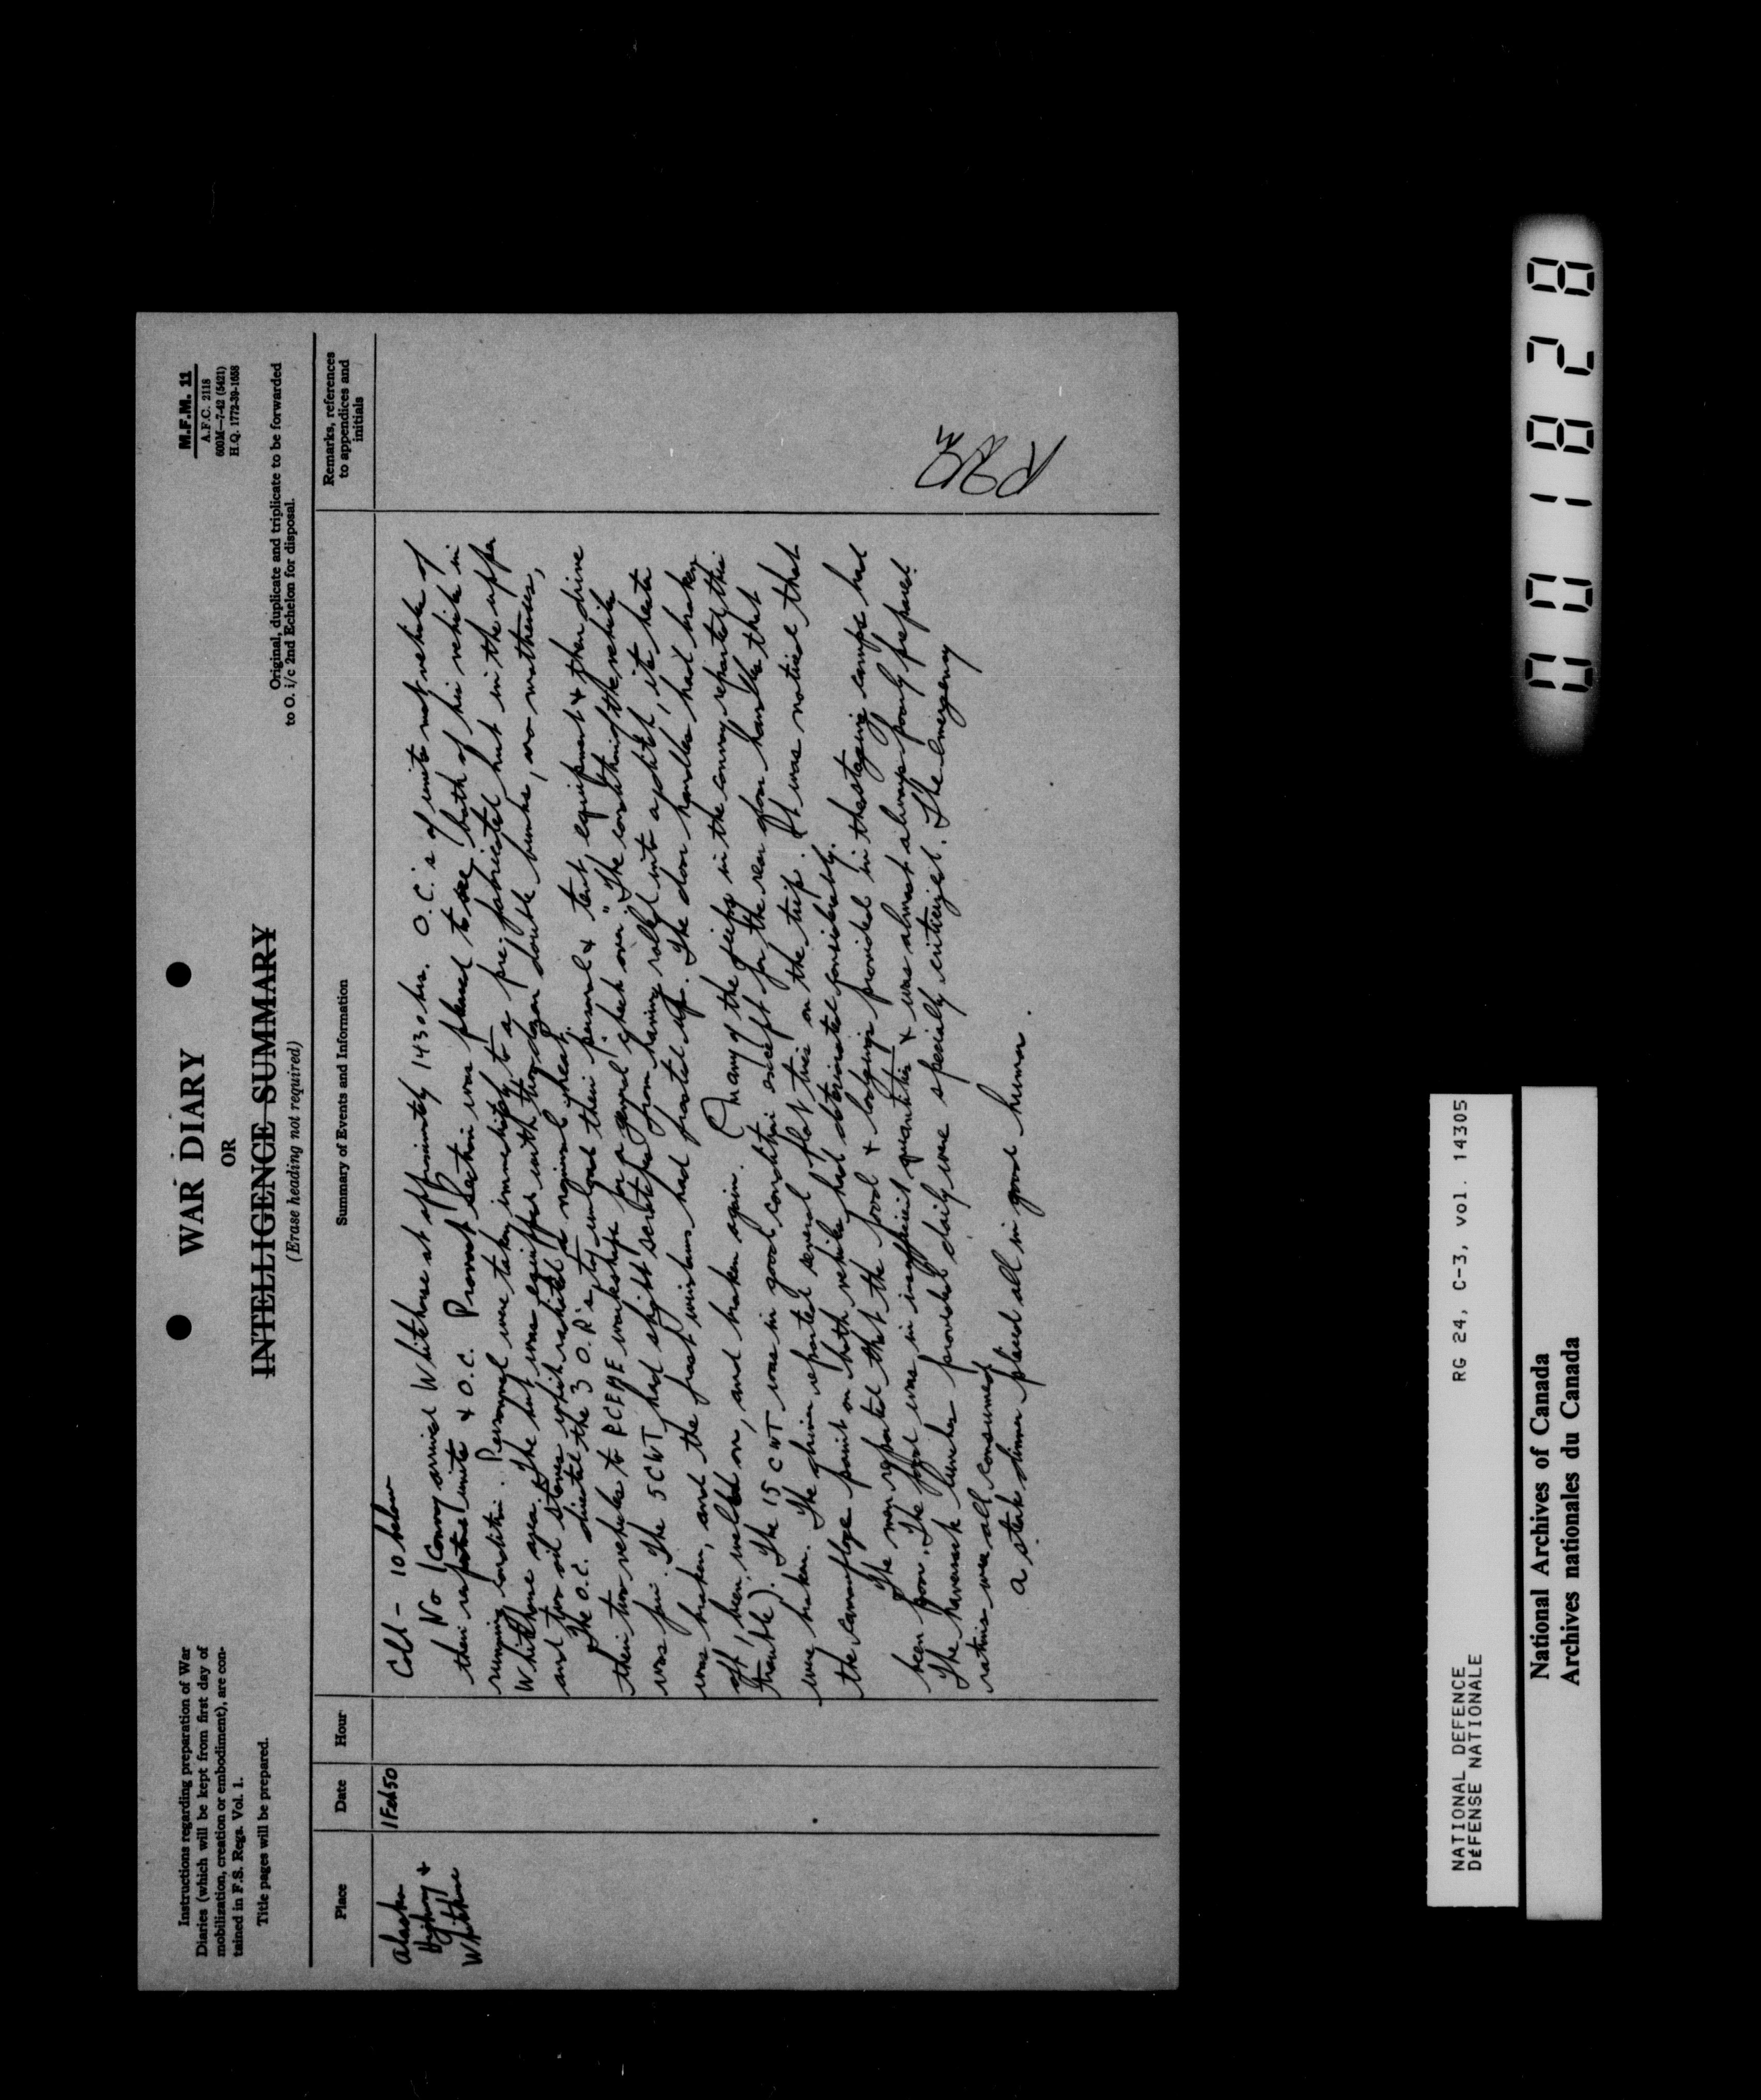 Instructions regarding preparation of War
Diaries (which will be kept from first day of
mobilization, creation or embodiment), are con-
tained in F.S. Regs. Vol. 1.
Title pages will be prepared.
WAR DIARY
OR
INTELLIGENCE SUMMARY
(Erase heading not required)
M.F.M. 11
A.F.C. 2118
600M—7-42 (5421)
H.Q. 1772-39-1658
Original, duplicate and triplicate to be forwarded
to O. i/c 2nd Echelon for disposal.
Place
Date
Hour
Summary of Events and Information
Remarks, references
to appendices and
initials
Alaska
Highway +
Whitehorse
1 Feb 50
Cold - 10 below
No 1 Convoy arrived Whitehorse at approximately 1430 hrs. O.C.'s of units met vehicles of
their respective units & O.C. Provost Section was pleased to see both of his vehicles in
running condition. Personnel were taken immediately to a pre-fabricated hut in the upper
Whitehorse area. The hut was equipped with two dozen double bunks, no mattresses,
and two oil stoves which radiated a nominal heat.
The O.C. directed the 3 O.R's to unload their personal & tent equipment & then drive
their two vehicles to RCEME workshops for a general "check over". The condition of the vehicles
was fair. The 5 CWT had slight scratches from having rolled into a ditch, its heater
was broken, and the frost windows had frosted up. The door handles had broken
off, been welded on, and broken again. (many of the jeeps in the convoy reported this
trouble). The 15 CWT was in good condition except for the rear door handles that
were broken. The drivers reported several flat tires on the trip. It was noticed that
the camouflage paint on both vehicles had deteriorated considerably.
The men reported that the food & lodgings provided in the staging camps had
been poor. The food was in insufficient quantities & was almost always poorly prepared.
The haversack lunches provided daily were specially criticized. The emergency
rations were all consumed.
A steak dinner placed all in good humor.
NATIONAL DEFENCE
DÉFENSE NATIONALE
RG 24, C-3, vol. 14305
National Archives of Canada
Archives nationales du Canada
001828